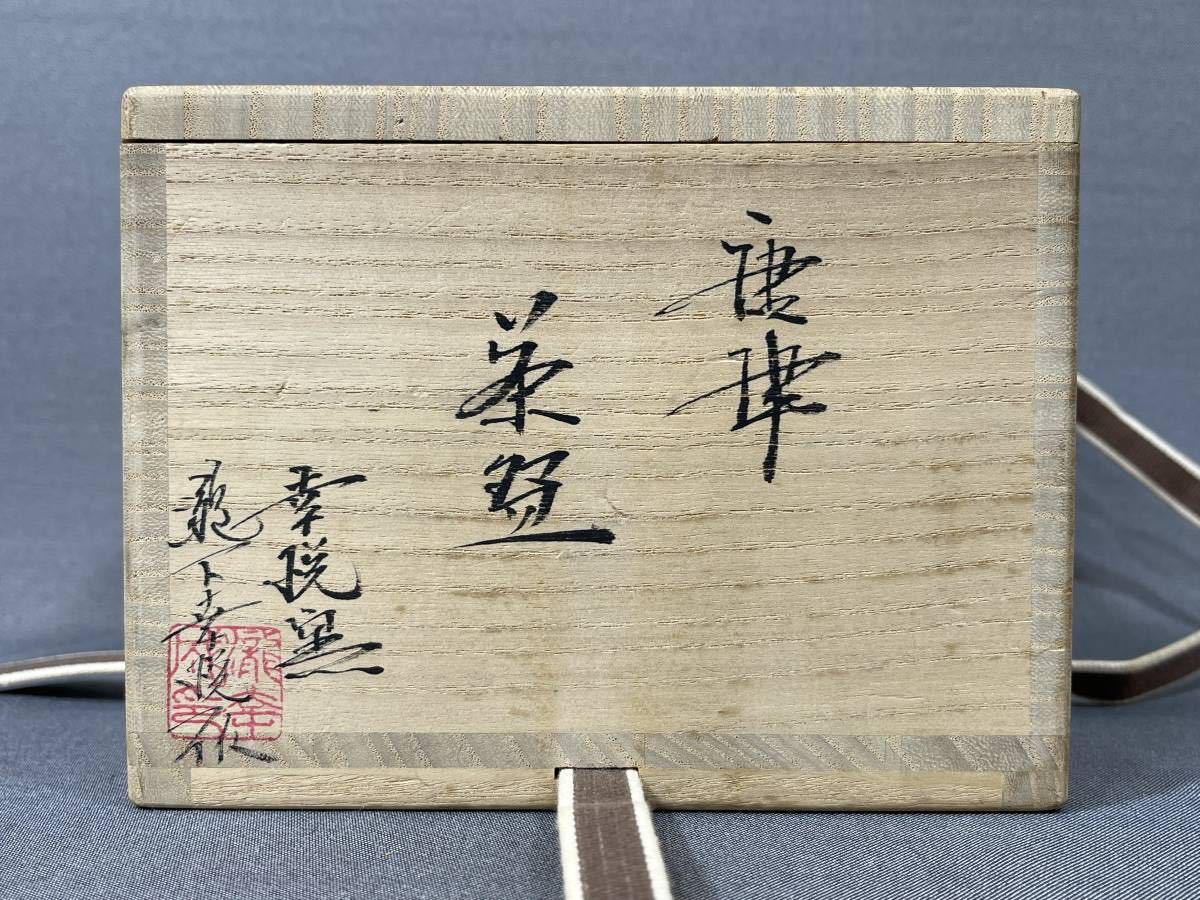 唐津
茶盌
幸悦窯
下幸悦作